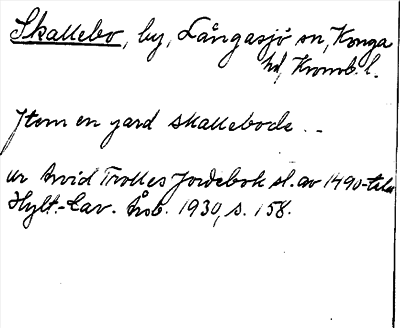 Skallebo, by, Långasjö sn, Konga
hd, Kronob. l.
Item en gard skallebode ..
ur Arvid Trolles Jordebok sl. av 1490-talet
Hylt.-Cav. Årsb. 1930, s. 158.